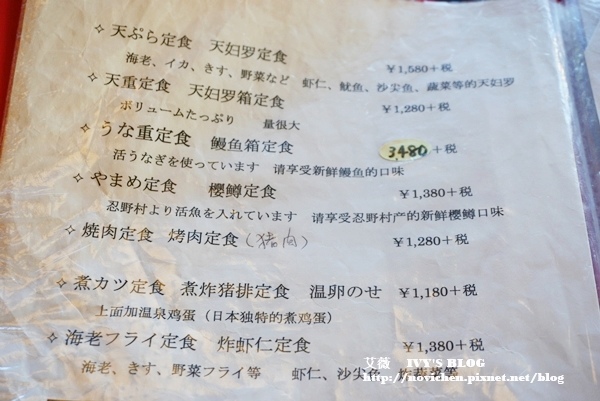 ✧ 天ぷら定食 天妇罗定食 ￥1,580＋税
海老、イカ、きす、野菜など 虾仁、鱿鱼、沙尖鱼、蔬菜等的天妇罗
✧ 天重定食 天妇罗箱定食 ￥1,280＋税
ボリュームたっぷり 量很大
✧ うな重定食 鳗鱼箱定食 3480＋税
活うなぎを使っています 请享受新鲜鳗鱼的口味
✧ やまめ定食 樱鳟定食 ￥1,380＋税
忍野村より活魚を入れています 请享受忍野村产的新鲜樱鳟口味
✧ 焼肉定食 烤肉定食(猪肉) ￥1,280＋税
✧ 煮カツ定食 煮炸猪排定食 温卵のせ ￥1,180＋税
上面加温泉鸡蛋（日本独特的煮鸡蛋）
✧ 海老フライ定食 炸虾仁定食 ￥1,380＋税
海老、きす、野菜フライ等 虾仁、沙尖鱼、炸蔬菜等
艾薇 IVY'S BLOG
http://novichen.pixnet.net/blog